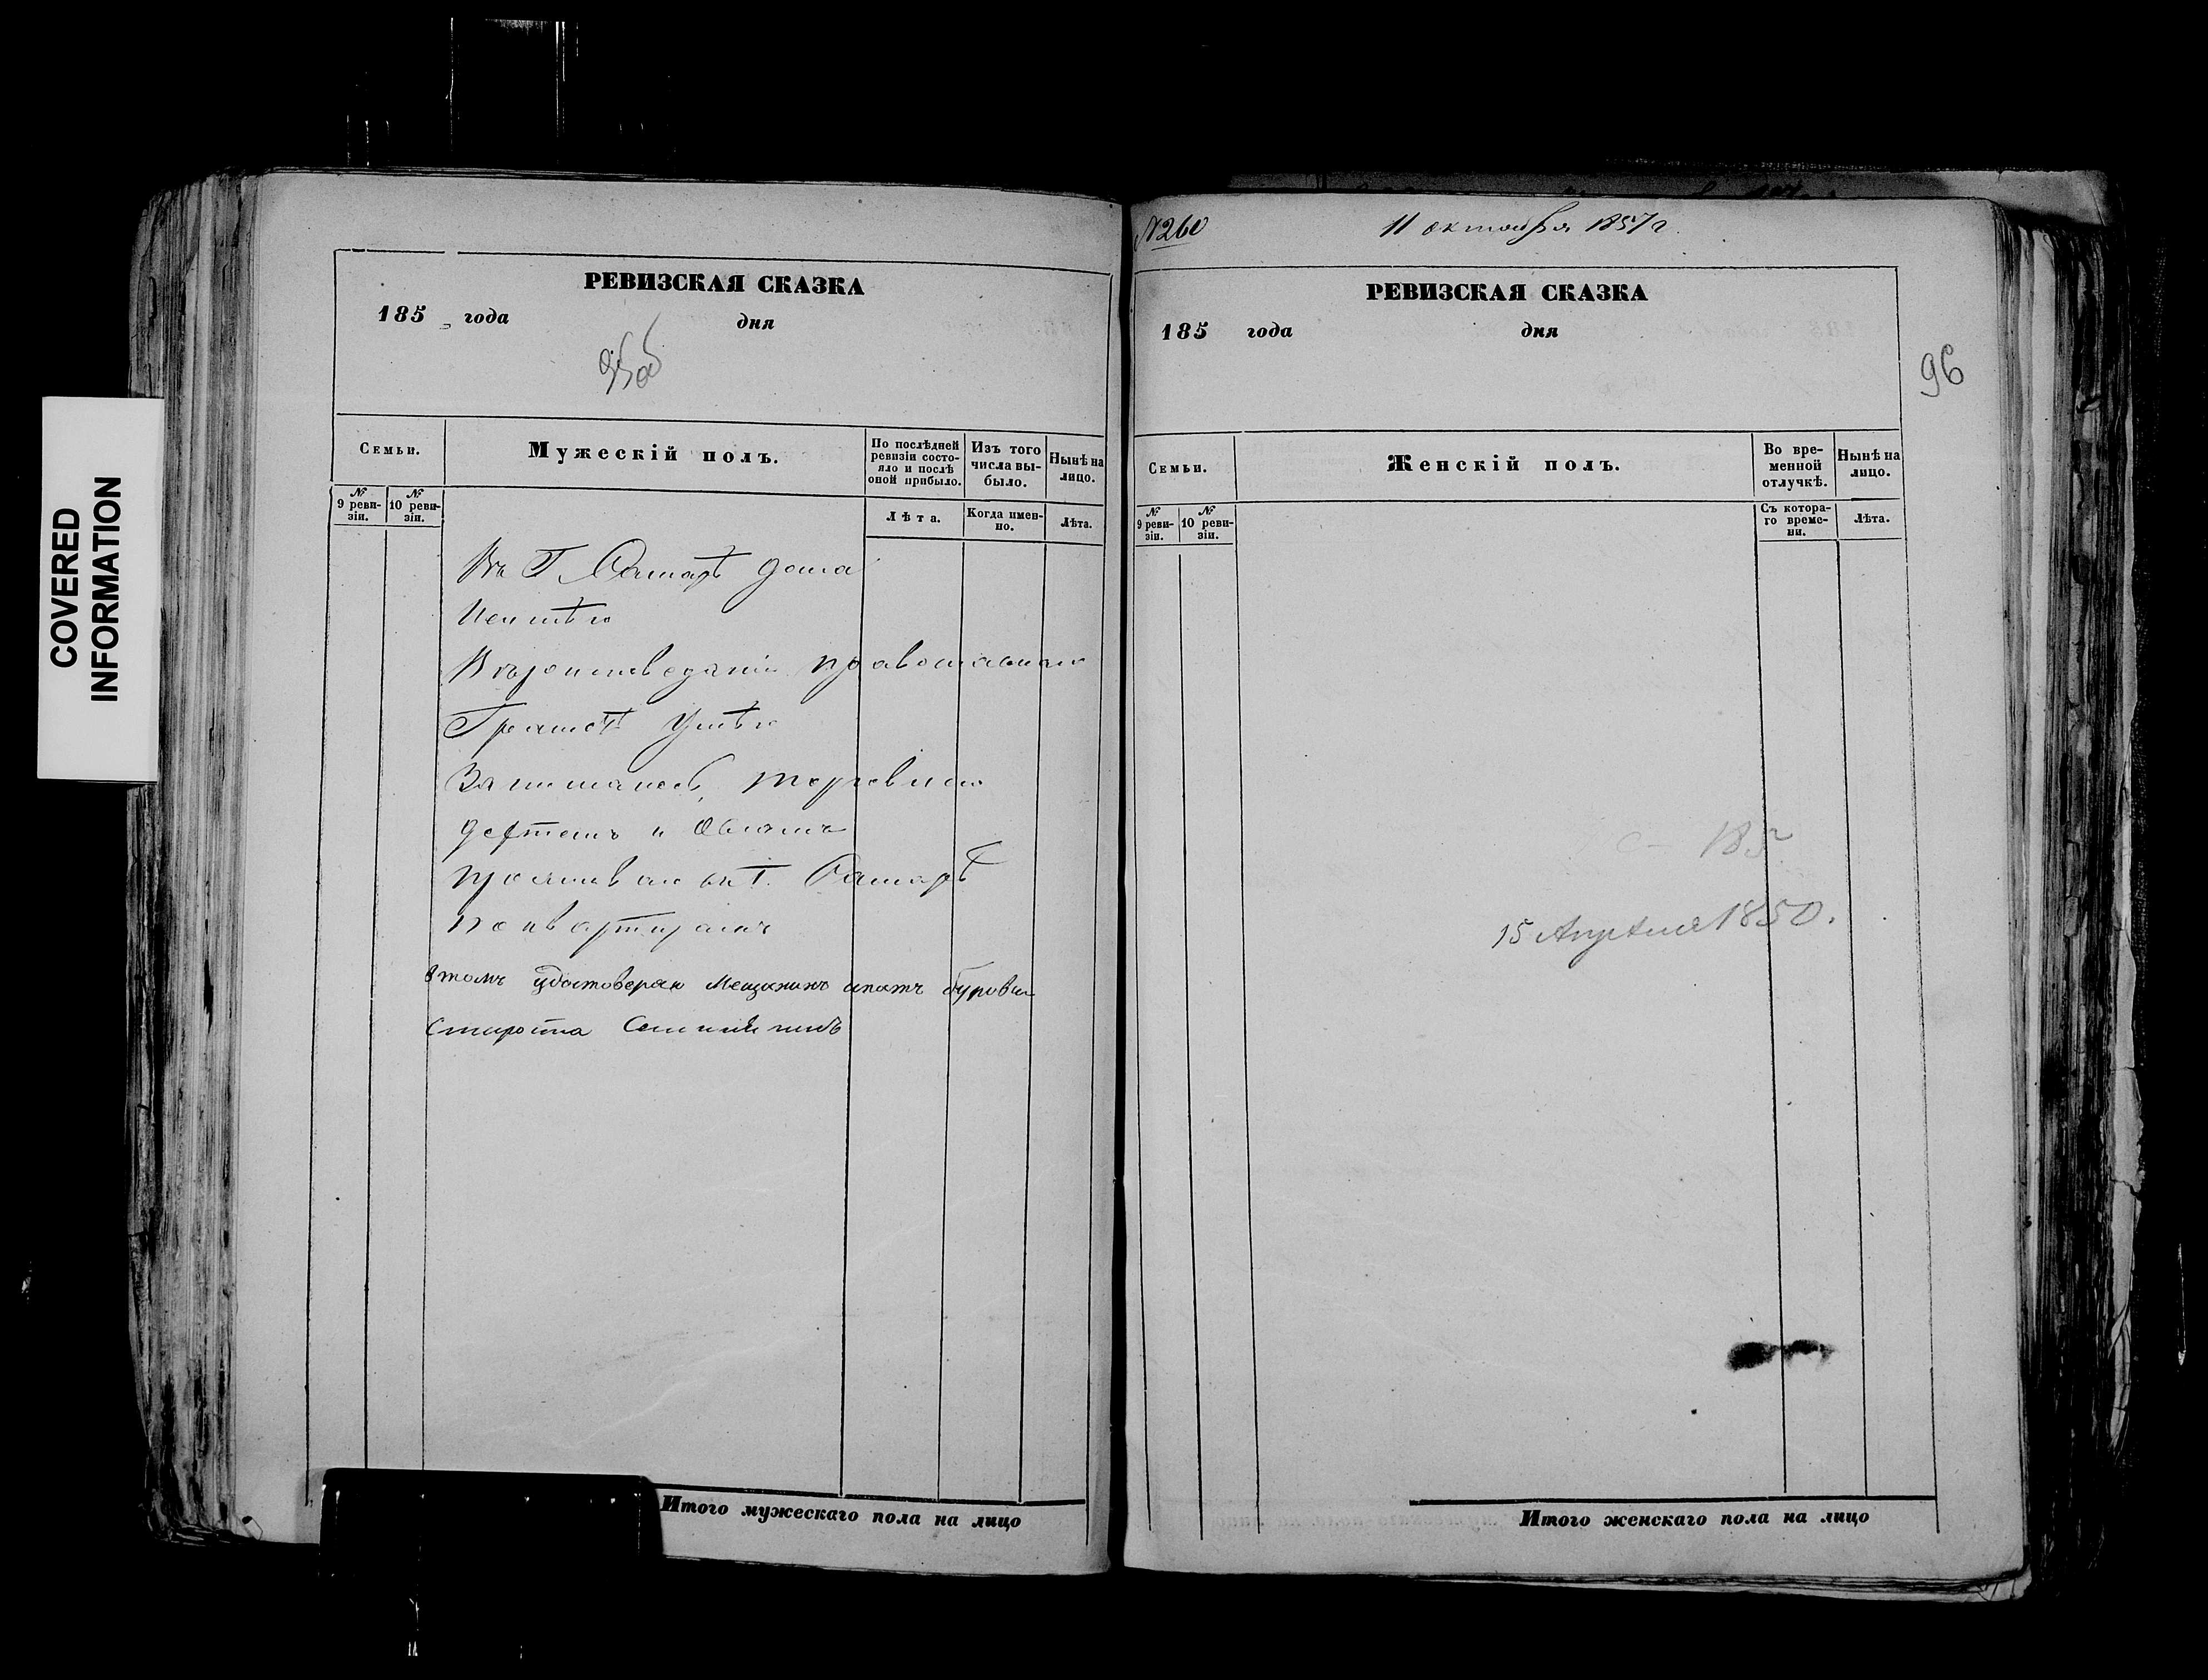 COVERED
INFORMATION
РЕВИЗСКАЯ СКАЗКА
185 года дня
95об
Семьи.
Мужескій полъ.
По послѣдней ревизіи состояло и послѣ оной прибыло.
Изъ того числа выбыло.
Нынѣ на лицо.
№ 9 ревизіи.
№ 10 ревизіи.
Лѣта.
Когда именно.
Лѣта.
Въ Г. Самарѣ дома
Неимѣю
Вѣроисповеданiя православнаго
Грамотѣ Умѣю
торговлею
дегтемъ и
проживаю въ Г. Самарѣ
поквартирамъ
Втомъ удостоверяю Мещанинъ
Староста
Итого мужескаго пола на лицо
№260
11 октября 1857 г.
РЕВИЗСКАЯ СКАЗКА
185 года дня
96
Семьи.
Женскій полъ.
Во временной отлучкѣ.
Нынѣ на лицо.
№ 9 ревизіи.
№ 10 ревизіи.
Съ котораго времени.
Лѣта.
15 Апреля 1850.
Итого женскаго пола на лицо